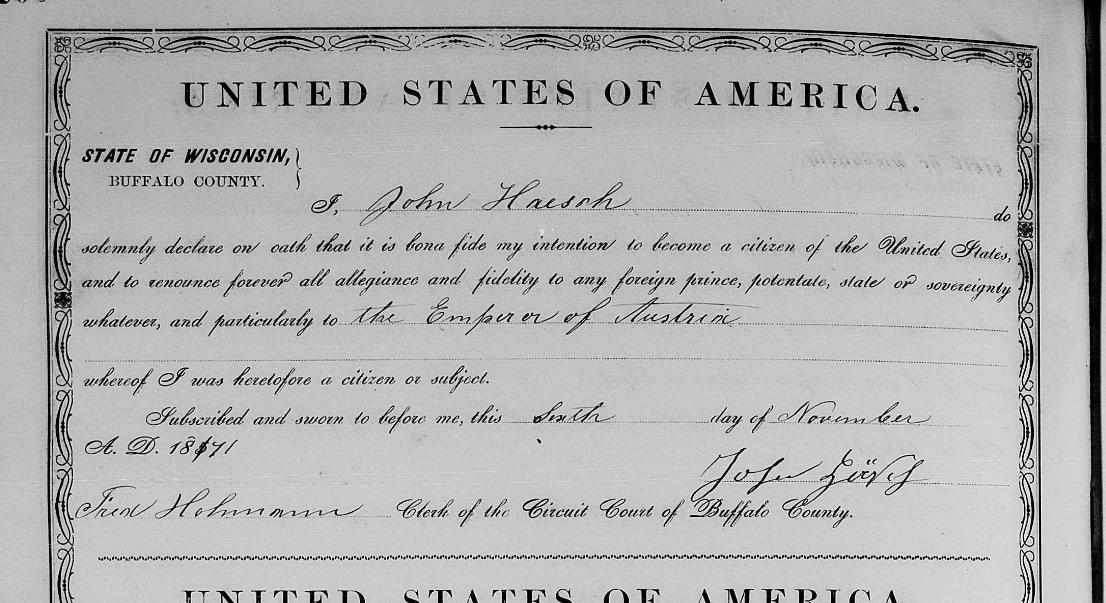 UNITED STATES OF AMERICA.
STATE OF WISCONSIN,
BUFFALO COUNTY.
I, John Haesch do
solemnly declare on oath that it is bona fide my intention to become a citizen of the United States,
and to renounce forever all allegiance and fidelity to any foreign prince, potentate, state or sovereignty
whatever, and particularly to the Emperor of Austria
whereof I was heretofore a citizen or subject.
Subscribed and sworn to before me, this Sixth day of November
A. D. 1871
John
Fred Hohmann Clerk of the Circuit Court of Buffalo County.
UNITED STATES OF AMERICA